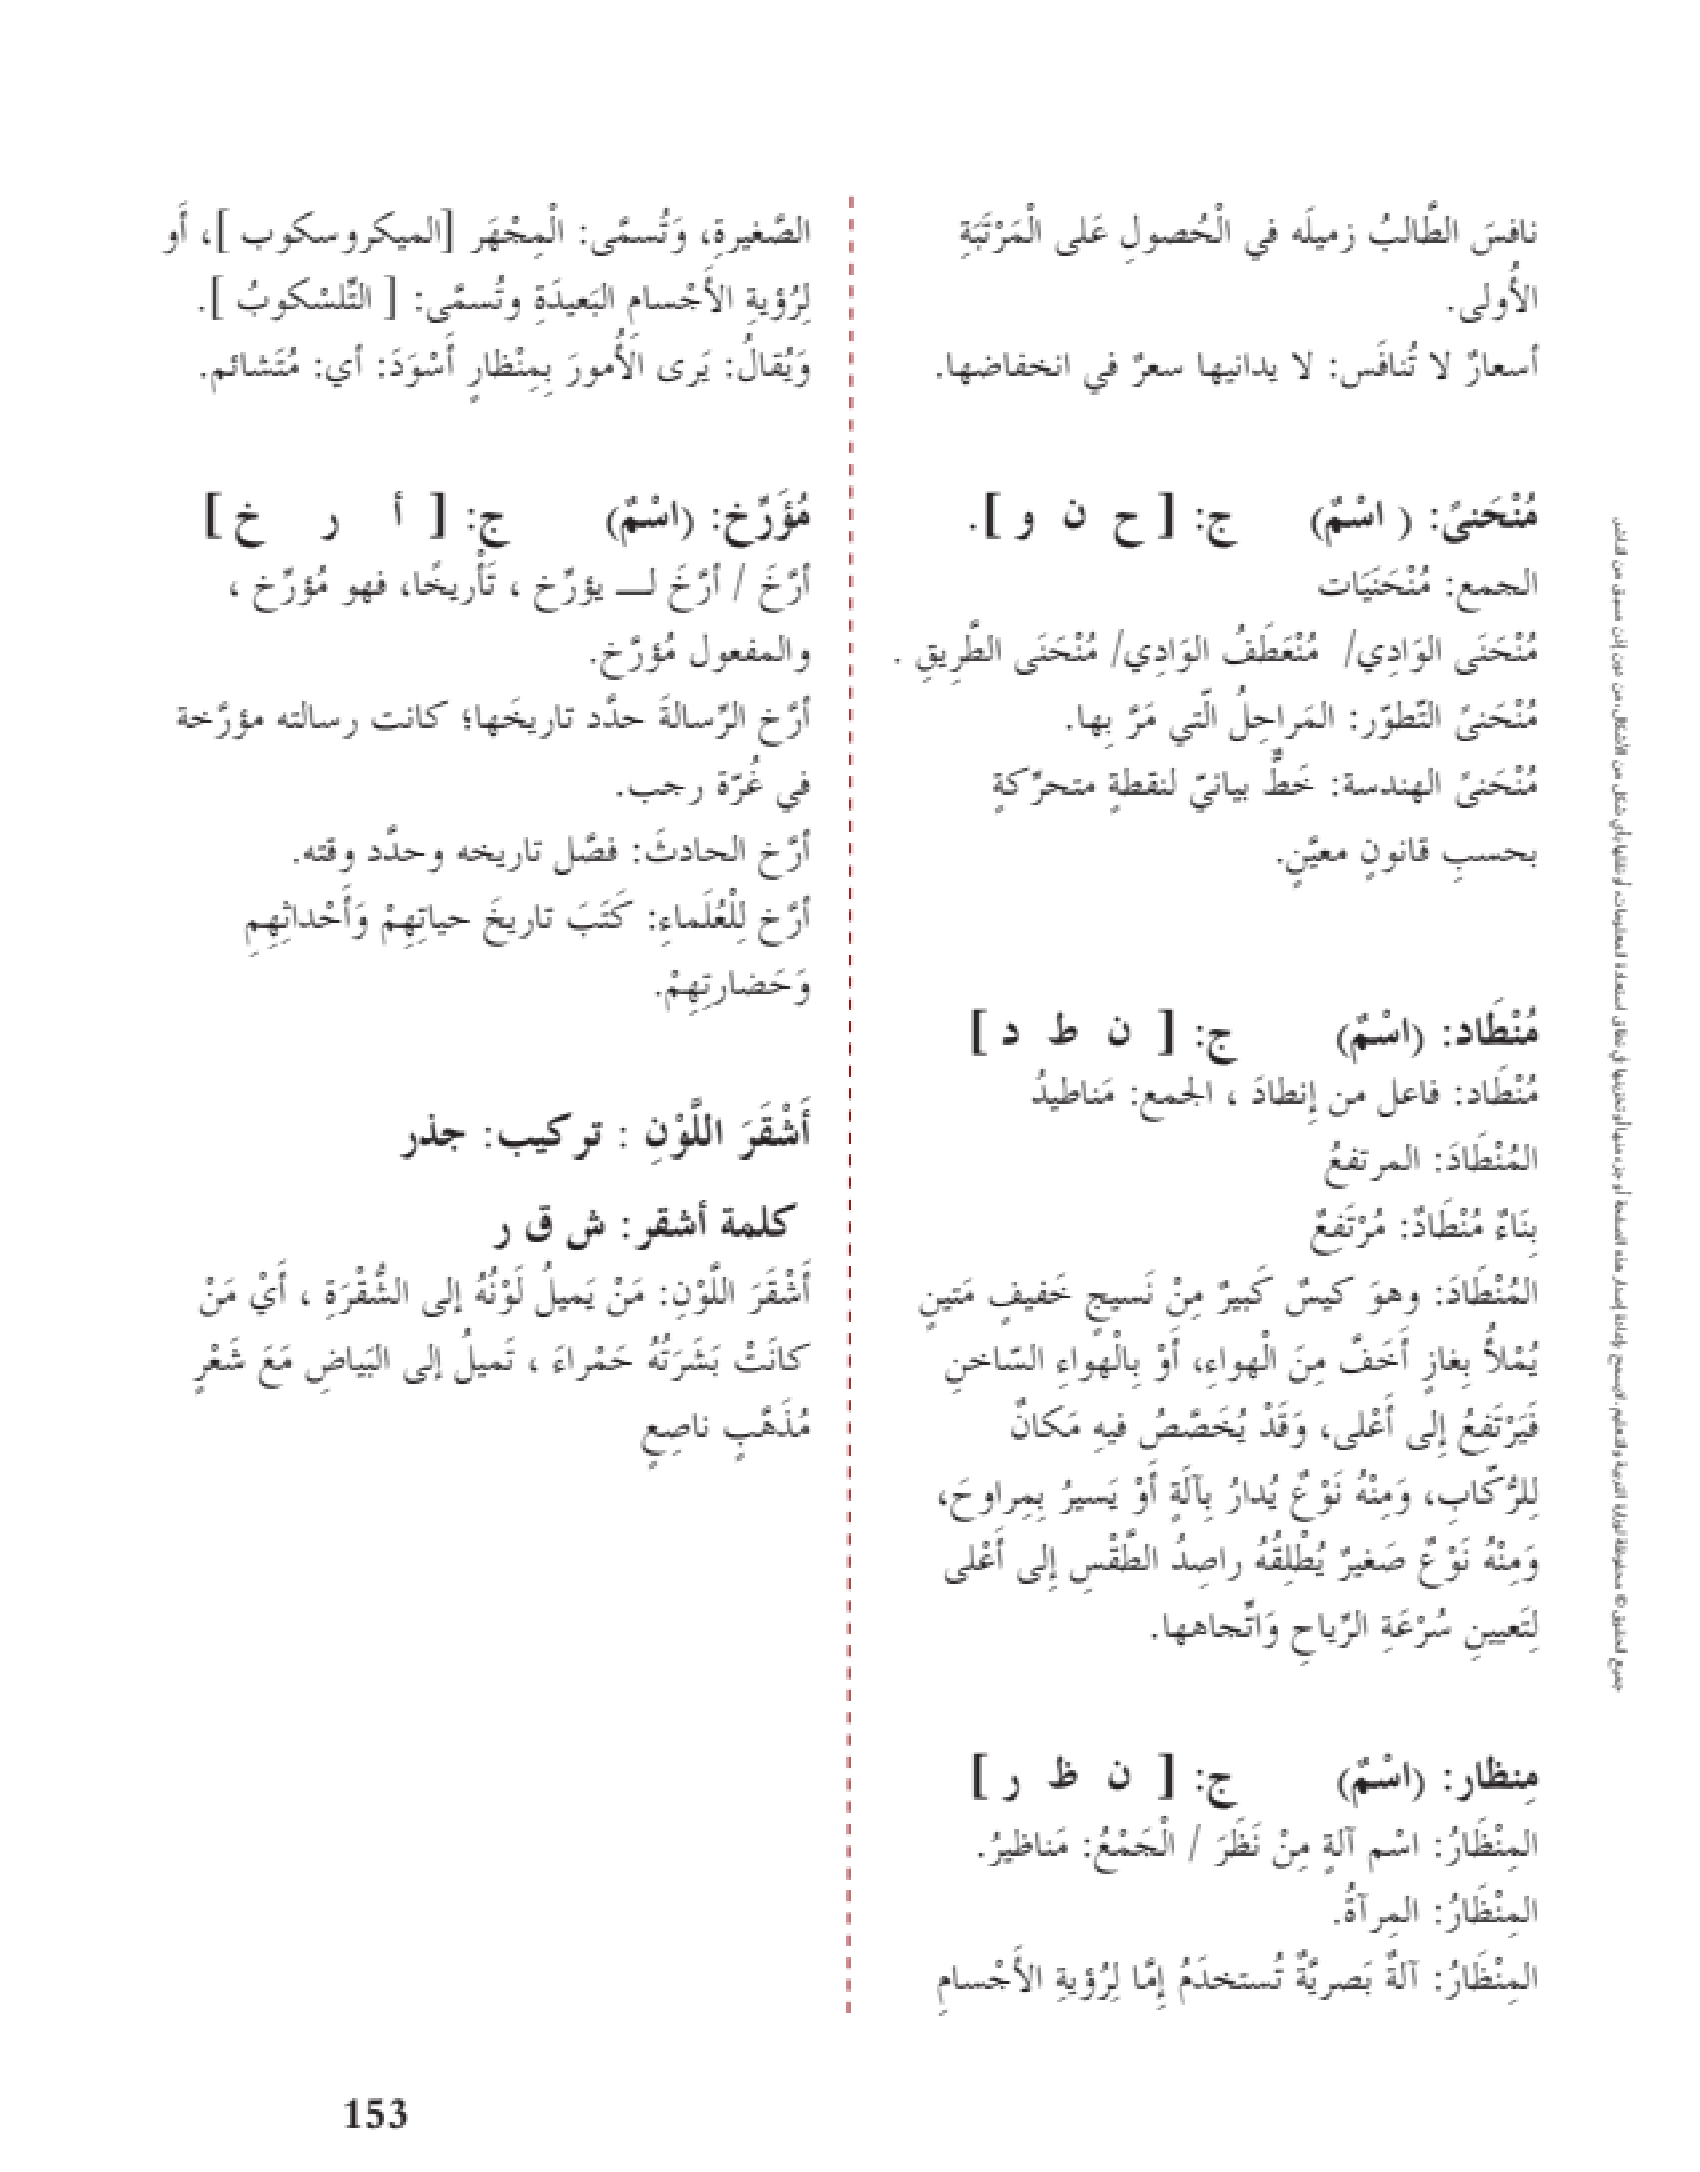 نافسَ الطَّالبُ زميلَه في الْحُصولِ عَلى الْمَرْتَبَةِ
الأُولى.
أسعارٌ لا تُنافَس: لا يدانيها سعرٌ في انخفاضها.
مُنْحَنىً: ( اسْمٌ) ج: [ ح ن و ].
الجمع: مُنْحَنَيَات
مُنْحَنَى الوَادِي/ مُنْعَطَفُ الوَادِي/ مُنْحَنَى الطَّرِيقِ .
مُنْحَنىً التّطوّر: المَراحِلُ الَّتي مَرَّ بِها.
مُنْحَنىً الهندسة: خَطٌّ بيانيّ لنقطةٍ متحرّكةٍ
بحسبِ قانونٍ معيَّنٍ.
مُنْطَاد: (اسْمٌ) ج: [ ن ط د ]
مُنْطَاد: فاعل من إِنطادَ ، الجمع: مَناطيدُ
المُنْطَادَ: المرتفعُ
بِنَاءٌ مُنْطَادٌ: مُرْتَفعٌ
المُنْطَادَ: وهوَ كيسٌ كَبيرٌ مِنْ نَسيجٍ خَفيفٍ مَتينٍ
يُمْلأُ بِغازٍ أَخَفَّ مِنَ الْهواءِ، أَوْ بِالْهواءِ السّاخنِ
فَيَرْتَفِعُ إِلى أَعْلى، وَقَدْ يُخَصَّصُ فيهِ مَكانٌ
لِلرُّكّابِ، وَمِنْهُ نَوْعٌ يُدارُ بِآلَةٍ أَوْ يَسيرُ بِمِراوحَ،
وَمِنْهُ نَوْعٌ صَغيرٌ يُطْلِقُهُ راصِدُ الطَّقْسِ إِلى أَعْلى
لِتَعيينِ سُرْعَةِ الرّياحِ وَاتِّجاهها.
مِنظار: (اسْمٌ) ج: [ ن ظ ر ]
المِنْظَارُ: اسْم آلةٍ مِنْ نَظَرَ / الْجَمْعُ: مَناظيرُ.
المِنْظَارُ: المِرآةُ.
المِنْظَارُ: آلةٌ بَصريَّةٌ تُستخدَمُ إِمَّا لِرُؤيةِ الأَجْسامِ
الصَّغيرةِ، وَتُسمَّى: الْمِجْهَر [الميكروسكوب ]، أَو
لِرُؤيةِ الأَجْسام البَعيدَةِ وتُسمَّى: [ التّلسْكوبُ ].
وَيُقالُ: يَرى الأُمورَ بِمِنْظارٍ أَسْوَدَ: أي: مُتَشائم.
مُؤَرَّخ: (اسْمٌ) ج: [ أ ر خ ]
أرَّخَ / أرَّخَ لـــ يؤرِّخ ، تَأْريخًا، فهو مُؤرِّخ ،
والمفعول مُؤرَّخ.
أرَّخ الرِّسالةَ حدَّد تاريخَها؛ كانت رسالته مؤرَّخة
في غُرّة رجب.
أرَّخ الحادثَ: فصَّل تاريخه وحدَّد وقته.
أرَّخ لِلْعُلَماءِ: كَتَبَ تاريخَ حياتِهِمْ وَأَحْداثِهِمِ
وَحَضارتِهِمْ.
أَشْقَرَ اللَّوْنِ : تركيب: جذر
كلمة أشقر: ش ق ر
أَشْقَرَ اللَّوْنِ: مَنْ يَميلُ لَوْنُهُ إلى الشُّقْرَةِ ، أَيْ مَنْ
كانَتْ بَشَرَتُهُ حَمْراءَ ، تَميلُ إلى البَياضِ مَعَ شَعْرٍ
مُذَهَّبٍ ناصِعٍ
153